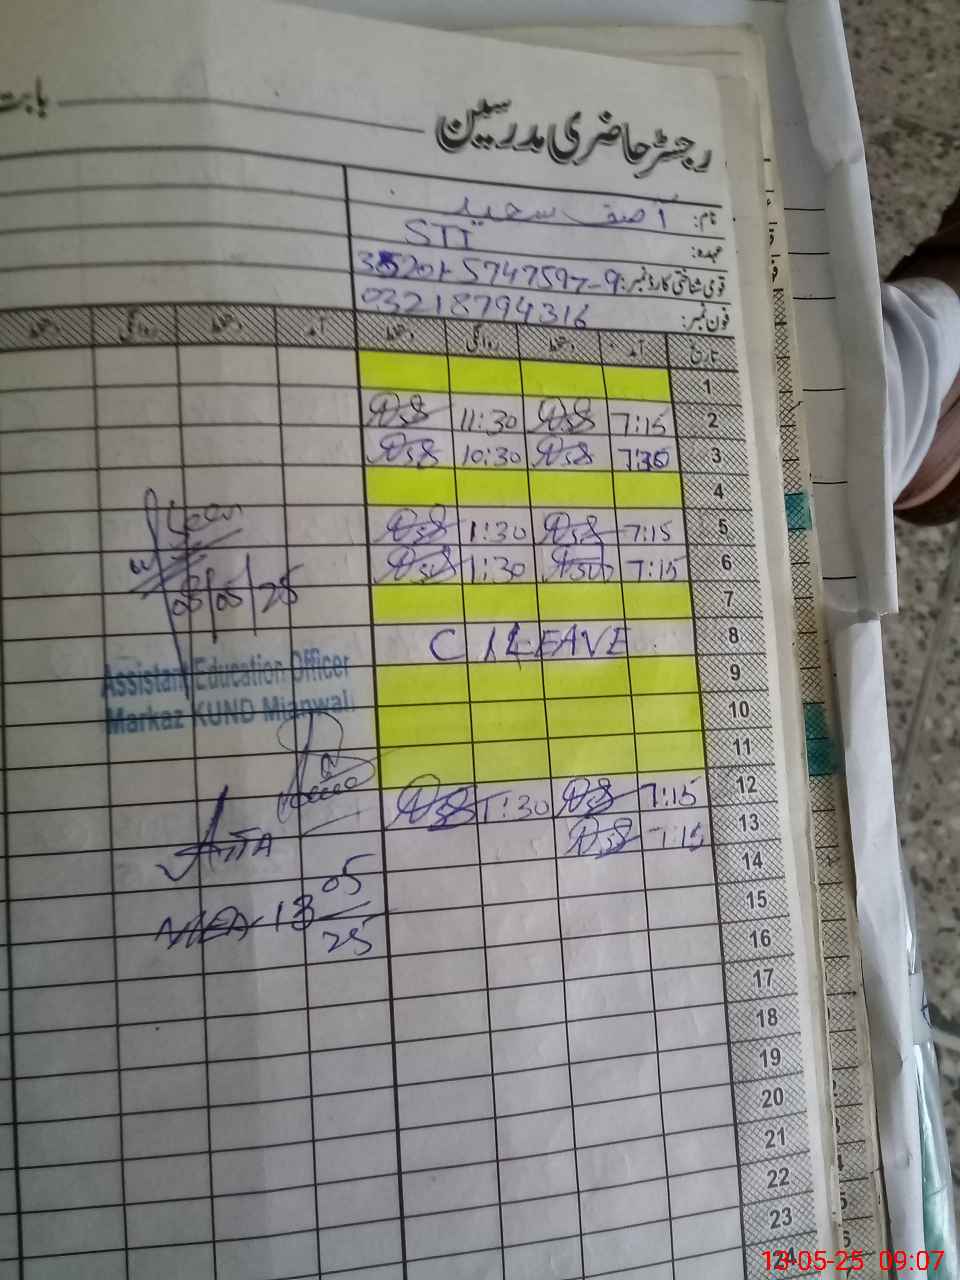 رجسٹر حاضری مدرسین بابت
نام: آصف سعید
عہدہ: STI
قومی شناختی کارڈ نمبر:
فون نمبر: 03218794316
تاریخ آمد دستخط روانگی دستخط آمد دستخط روانگی دستخط
1
11:30 7:15 2
10:30 7:30 3
4
1:30 7:15 5
1:30 7:15 6
7
C / LEAVE 8
9
10
11
1:30 7:15 12
7:15 13
14
15
16
17
18
19
20
21
22
23
24
08/05/25
Assistant Education Officer
Markaz KUND Mianwali
ATTA
MEA 13
05
25
13-05-25 09:07